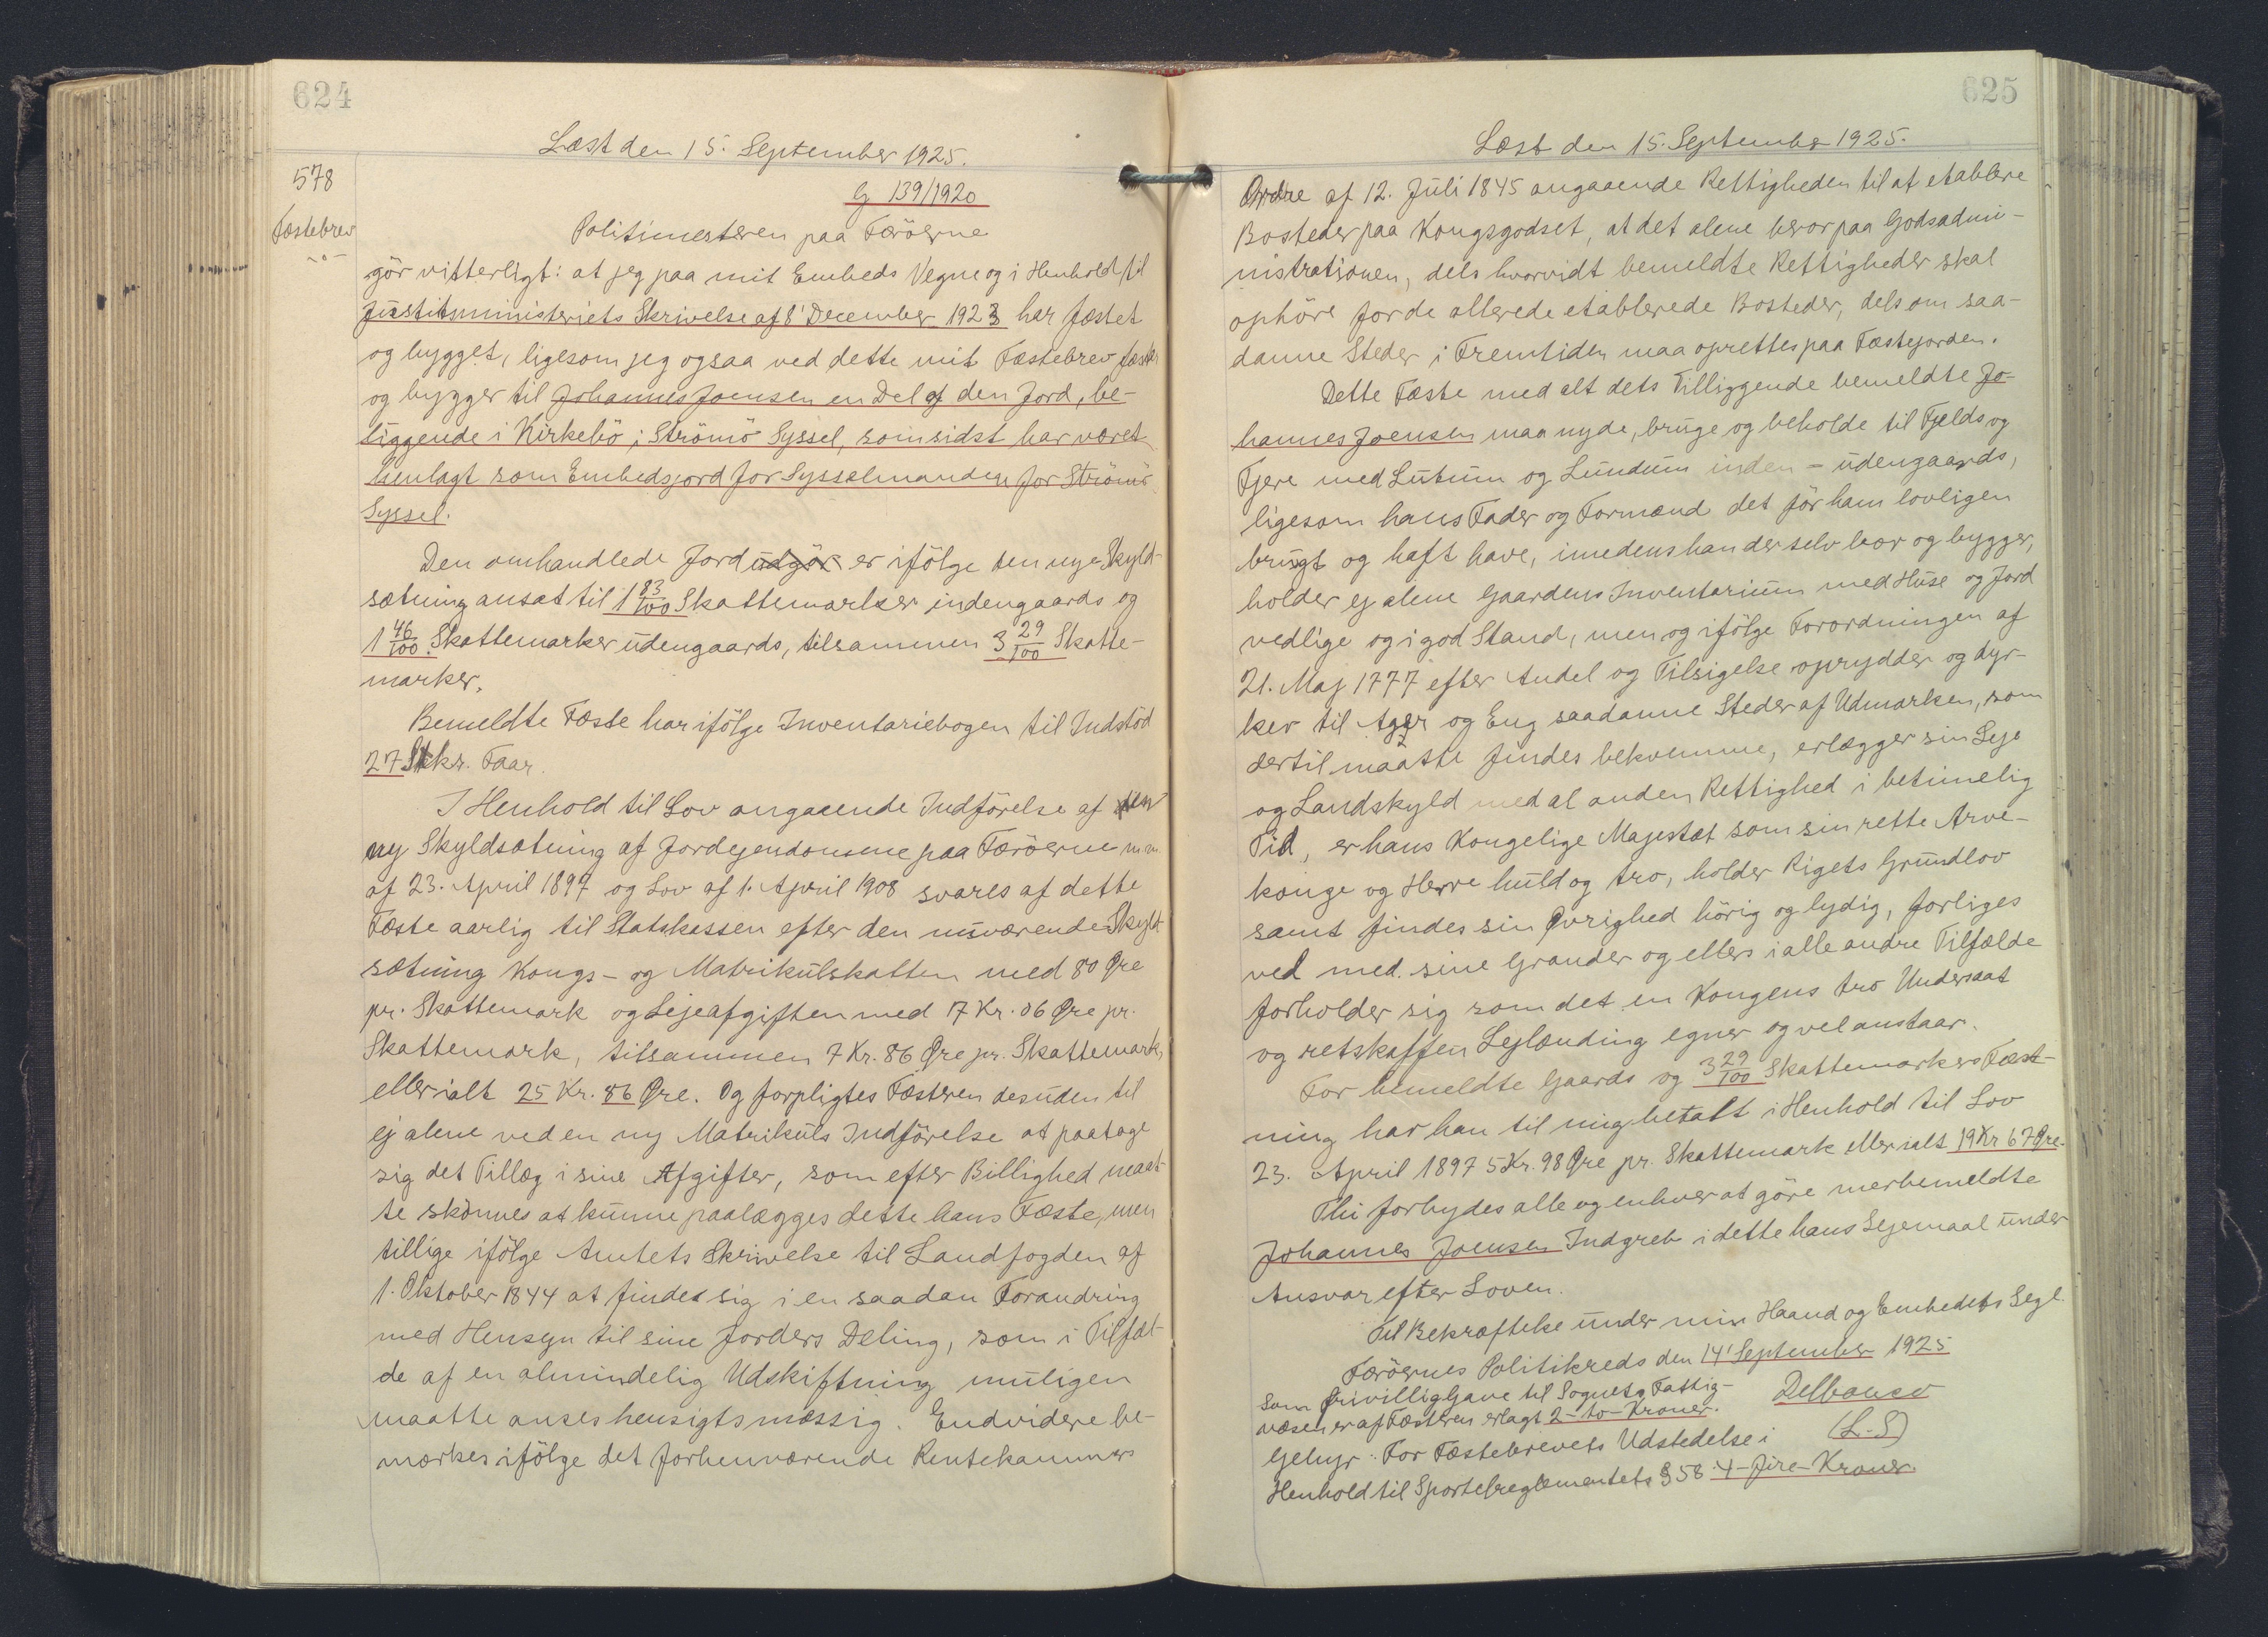 624
Læst den 15. September 1925.
578
Fæstebrev
G 139/1920
Politimesteren paa Færöerne
gör vitterligt: at jeg paa mit Embeds Vegne og i Henhold til
Justitsministeriets Skrivelse af 8' December 1923 har fæstet
og bygget, ligesom jeg ogsaa ved dette mit Fæstebrev fæster
og bygger til Johannes Joensen en Del af den Jord, be-
liggende i Kirkebö i Strömö Syssel, som sidst har været
henlagt som Embedsjord for Sysselmanden for Strömö
Syssel.
Den omhandlede Jord udgör er ifölge den nye Skyld-
sætning ansat til 1 83/100 Skattemarker indengaards og
1 46/100 Skattemarker udengaards, tilsammen 3 29/100 Skatte-
marker.
Bemeldte Fæste har ifölge Inventariebogen til Indstöd
27 Stkr. Faar.
I Henhold til Lov angaaende Indförelse af den
ny Skyldsætning af Jordejendomme paa Færöerne m.v.
af 23. April 1897 og Lov af 1. April 1908 svares af dette
Fæste aarlig til Statskassen efter den nuværende Skyld-
sætning Kongs- og Matrikulskatten med 80 Øre
pr. Skattemark og Lejeafgiften med 17 Kr. 06 Øre pr.
Skattemark, tilsammen 7 Kr. 86 Øre pr. Skattemark,
eller ialt 25 Kr. 86 Øre. Og forpligtes Fæsteren desuden til
ej alene ved en ny Matrikuls Indförelse at paatage
sig det Tillæg i sine Afgifter, som efter Billighed maat-
te skönnes at kunne paalægges dette hans Fæste, men
tillige ifölge Amtets Skrivelse til Landfogden af
1. Oktober 1844 at finde sig i en saadan Forandring
med Hensyn til sine Jorders Deling, som i Tilfæl-
de af en almindelig Udskiftning muligen
maatte anses hensigtsmæssig. Endvidere be-
mærkes ifölge det forhenværende Rentekammers
625
Læst den 15. September 1925.
Ordre af 12. Juli 1845 angaaende Rettigheden til at etablere
Bosteder paa Kongsgodset, at det alene beror paa Godsadmi-
nistrationen, dels hvorvidt bemeldte Rettigheder skal
ophöre for de allerede etablerede Bosteder, dels om saa-
danne Steder i Fremtiden maa oprettes paa Fæstejorden.
Dette Fæste med alt dets Tilliggende bemeldte Jo-
hannes Joensen maa nyde, bruge og beholde til Fjelds og
Fjere med Lutum og Lundum inden- udengaards,
ligesom hans Fader og Formænd det för ham lovligen
brugt og haft have, imedens han der selv bor og bygger,
holder ej alene Gaardens Inventarium med Huse og Jord
vedlige og i god Stand, men og ifölge Forordningen af
21. Maj 1777 efter Andel og Tilsigelse oprydder og dyr-
ker til Ager og Eng saadanne Steder af Udmarken, som
dertil maatte findes bekvemme, erlægger sin Leje
og Landskyld med al anden Rettighed i betimelig
Tid, er hans Kongelige Majestæt som sin rette Arve-
konge og Herre huld og tro, holder Rigets Grundlov
samt findes sin Øvrighed hörig og lydig, forliges
ved med. sine Grander og ellers i alle andre Tilfælde
forholder sig som det en Kongens tro Undersaat
og retskaffen Lejlænding egner og vel anstaar.
For bemeldte Gaards og 3 29/100 Skattemarkers Fæst-
ning har han til mig betalt i Henhold til Lov
23. April 1897 5 Kr. 98 Øre pr. Skattemark eller ialt 19 Kr 67 Øre.
Thi forbydes alle og enhver at göre merbemeldte
Johannes Joensen Indgreb i dette hans Lejemaal under
Ansvar efter Loven.
Til Bekræftelse under min Haand og Embedets Segl.
Færöernes Politikreds den 14' September 1925
Som frivillig Gave til Sognets Fattig-
væsen er af Fæsteren erlagt 2 - to - Kroner.
Delbanco
(L.S)
Gebyr: For Fæstebrevets Udstedelse i
Henhold til Sportelreglementets § 58: 4 - fire - Kroner.